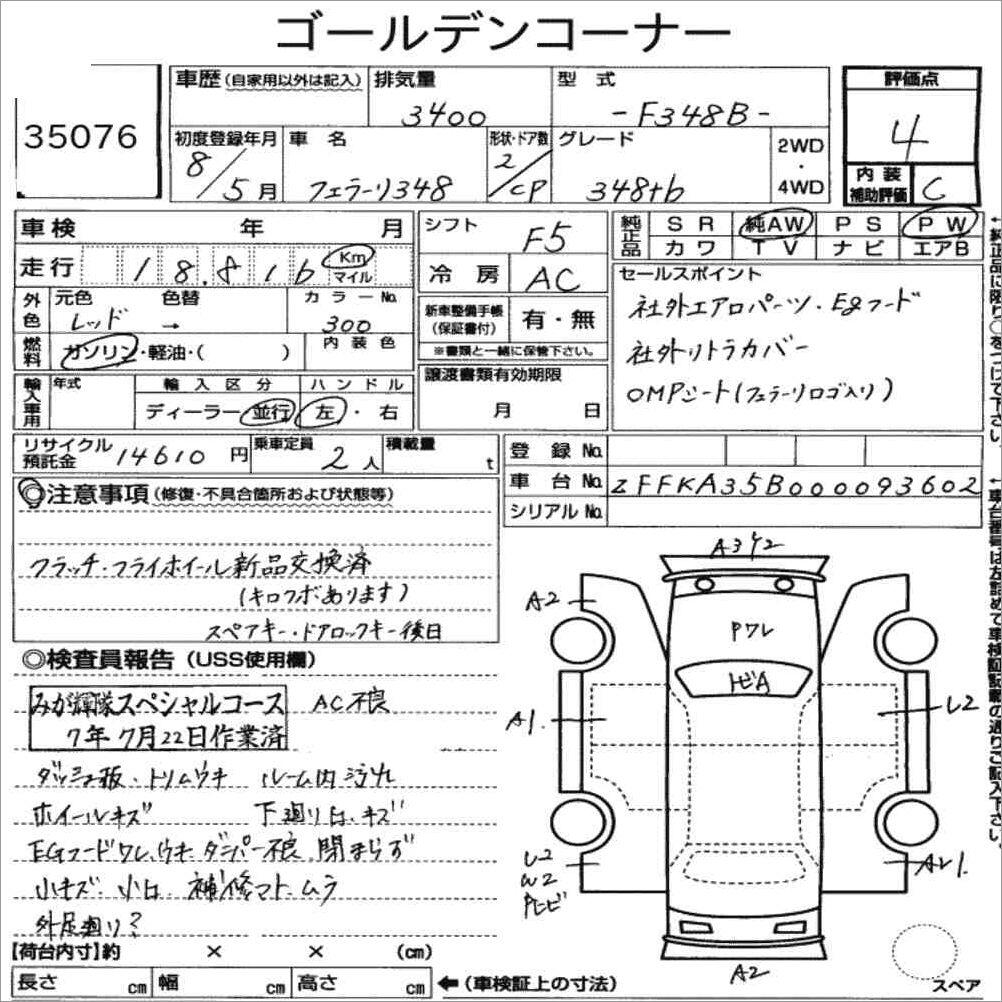 ゴールデンコーナー
35076
車歴(自家用以外は記入)
排気量
3400
型 式
-F348B-
評価点
4
内装補助評価
C
初度登録年月
8/5月
車 名
フェラーリ348
形状・ドア数
2/CP
グレード
348tb
2WD
・
4WD
車検 年 月
走行 18.816 Km マイル
外色
元色 レッド
色替 →
カラーNo.
300
燃料
ガソリン・軽油・( )
内 装 色
輸入車用
年式
輸 入 区 分
ディーラー 並行
ハ ン ド ル
左・右
シフト
F5
冷 房
AC
新車整備手帳
(保証書付)
有・無
※書類と一緒に保管下さい。
譲渡書類有効期限
月 日
純正品
S R 純AW P S P W
カ ワ T V ナ ビ エアB
セールスポイント
社外エアロパーツ・Egフード
社外リトラカバー
OMPシート(フェラーリロゴ入り)
←純正品に限り○をつけて下さい。
リサイクル預託金
14610円
乗車定員
2人
積載量
t
登 録 No.
車 台 No.
ZFFKA35B000093602
シリアルNo.
←車台番号は左詰めで車検証記載の通りご記入下さい。
◎注意事項(修復・不具合箇所および状態等)
クラッチ・フライホイール新品交換済
(キロフボあります)
スペアキー・ドアロックキー後日
◎検査員報告(USS使用欄)
みが輝隊スペシャルコース
7年7月22日作業済
AC不良
ダッシュ板・トリムウキ ルーム内汚れ
ホイールキズ 下廻り凹、キズ
EGフードワレ、ウキ ダンパー不良 閉まらず
小キズ 小凹 補修マト、ムラ
外足廻り?
【荷台内寸】約 × × (cm)
長さ cm 幅 cm 高さ cm
←(車検証上の寸法)
A2
Pワレ
トビA
A1
U2
U2
W2
A2
スペア